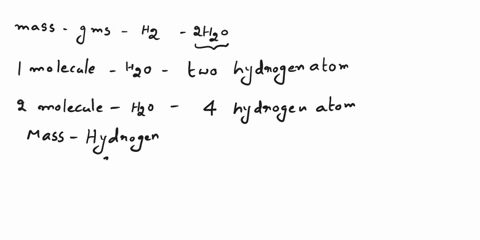 mass - gms - H₂ - 2H₂O
1 molecule - H₂O - two hydrogen atom
2 molecule - H₂O - 4 hydrogen atom
Mass - Hydrogen